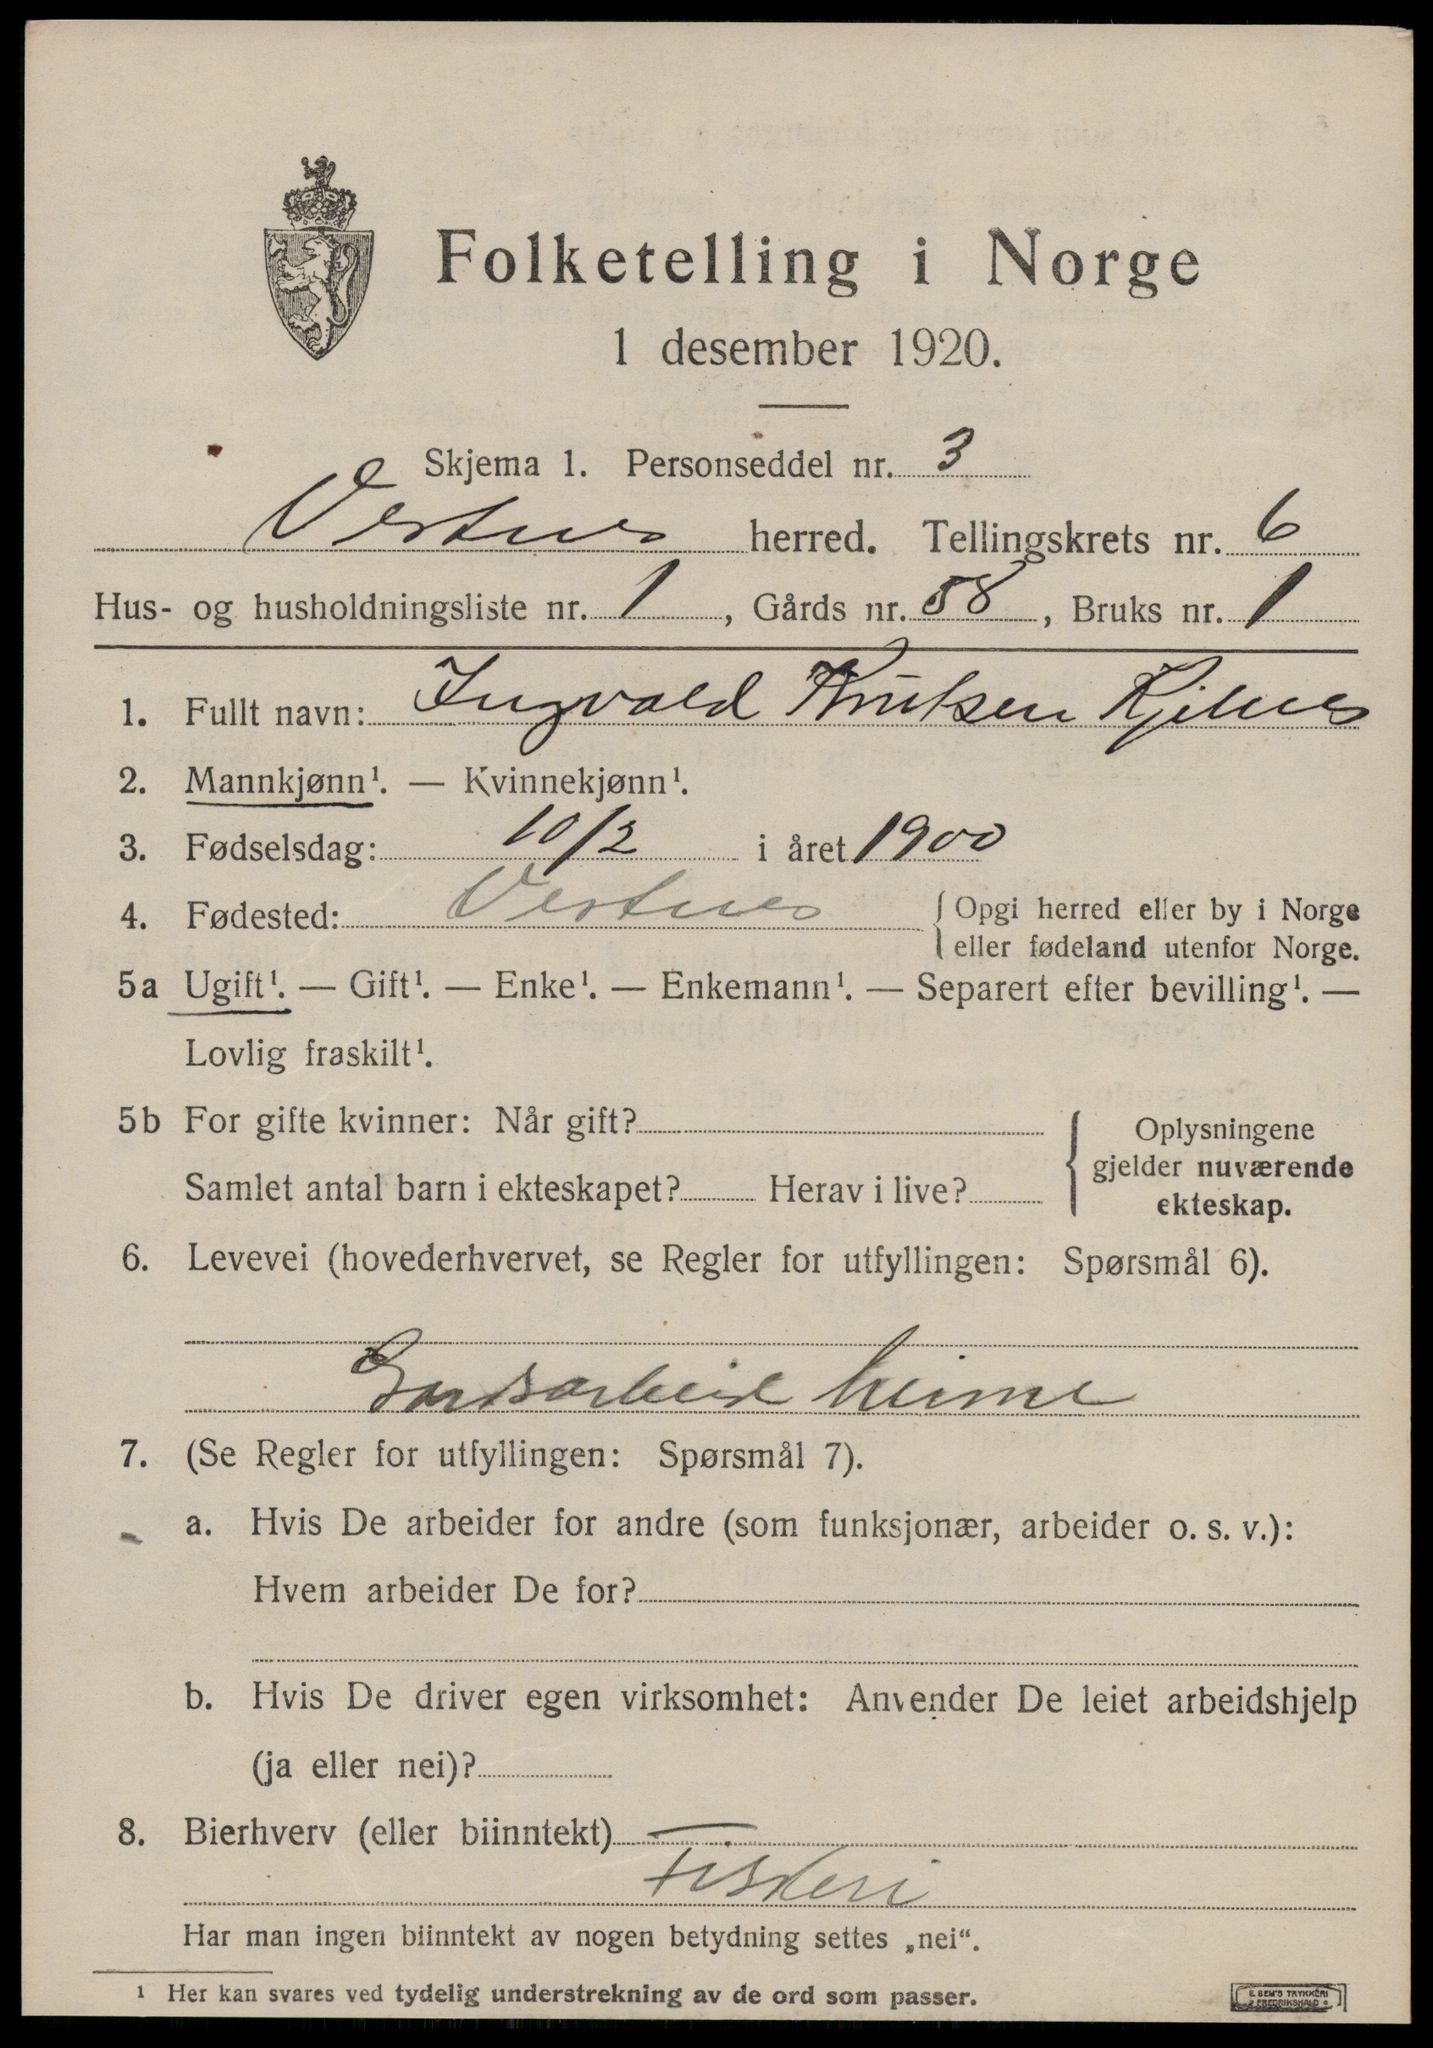 Folketelling i Norge
1 desember 1920.
Skjema 1. Personseddel nr. 3
Vestnes herred. Tellingskrets nr. 6
Hus- og husholdningsliste nr. 1, Gårds nr. 58, Bruks nr. 1
1. Fullt navn: Ingvald Knutsen Kjelnes
2. Mannkjønn¹. — Kvinnekjønn¹.
3. Fødselsdag: 10/2 i året 1900
4. Fødested: Vestnes { Opgi herred eller by i Norge
eller fødeland utenfor Norge.
5a Ugift¹. — Gift¹. — Enke¹. — Enkemann¹. — Separert efter bevilling¹. —
Lovlig fraskilt¹.
5b For gifte kvinner: Når gift?
Samlet antal barn i ekteskapet? Herav i live?
{ Oplysningene
gjelder nuværende
ekteskap.
6. Levevei (hovederhvervet, se Regler for utfyllingen: Spørsmål 6).
Gardsarbeid heime
7. (Se Regler for utfyllingen: Spørsmål 7).
a. Hvis De arbeider for andre (som funksjonær, arbeider o. s. v.):
Hvem arbeider De for?
b. Hvis De driver egen virksomhet: Anvender De leiet arbeidshjelp
(ja eller nei)?
8. Bierhverv (eller biinntekt)
Fiskeri
Har man ingen biinntekt av nogen betydning settes „nei“.
¹ Her kan svares ved tydelig understrekning av de ord som passer.
E. SEM'S TRYKKERI
FREDRIKSHALD